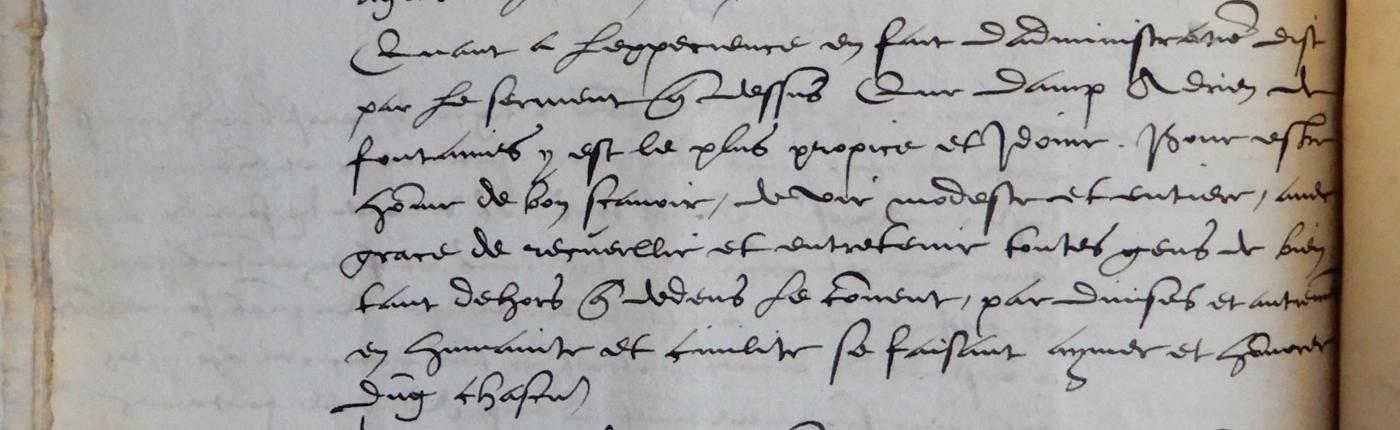 Quant a lexperience en fait dadministratiõ dist
par le serment q̃ dessus Que damp Adrien de
fontaines y est le plus propice et Idoine. Pour estre
hõme de bon scavoir, de vie modeste et entiere, avec
grace de recueillir et entretenir toutes gens de bien
tant dehors q̃ dedens le cõvent, par divises et autremt
en humanite et civilite se faisant aymer et hõnorer
dũg chascun